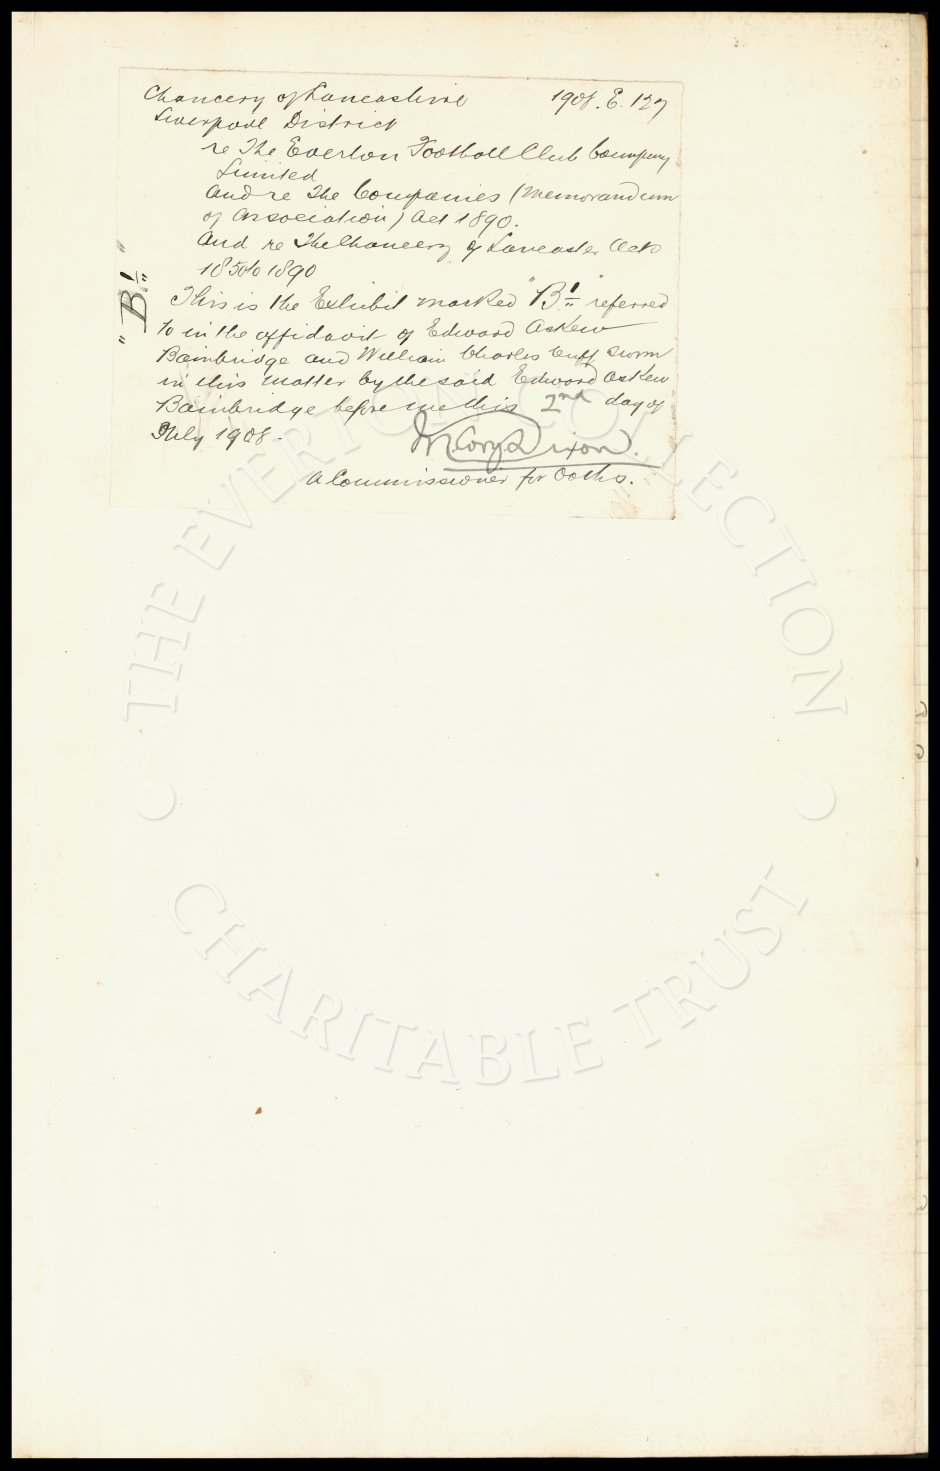 Chancery of Lancashire 1908. E. 127
Liverpool District
re The Everton Football Club Company
Limited
and re The Companies (Memorandum
of Association) Act 1890.
And re The Chancery of Lancaster Acts
1850 to 1890
"B1"
This is the Exhibit marked "B1" referred
to in the affidavit of Edward Askew
Bainbridge and William Charles Cuff sworn
in this matter by the said Edward Askew
Bainbridge before me this 2nd day of
July 1908.
Cory Dixon.
A Commissioner for Oaths.
THE EVERTON COLLECTION
CHARITABLE TRUST